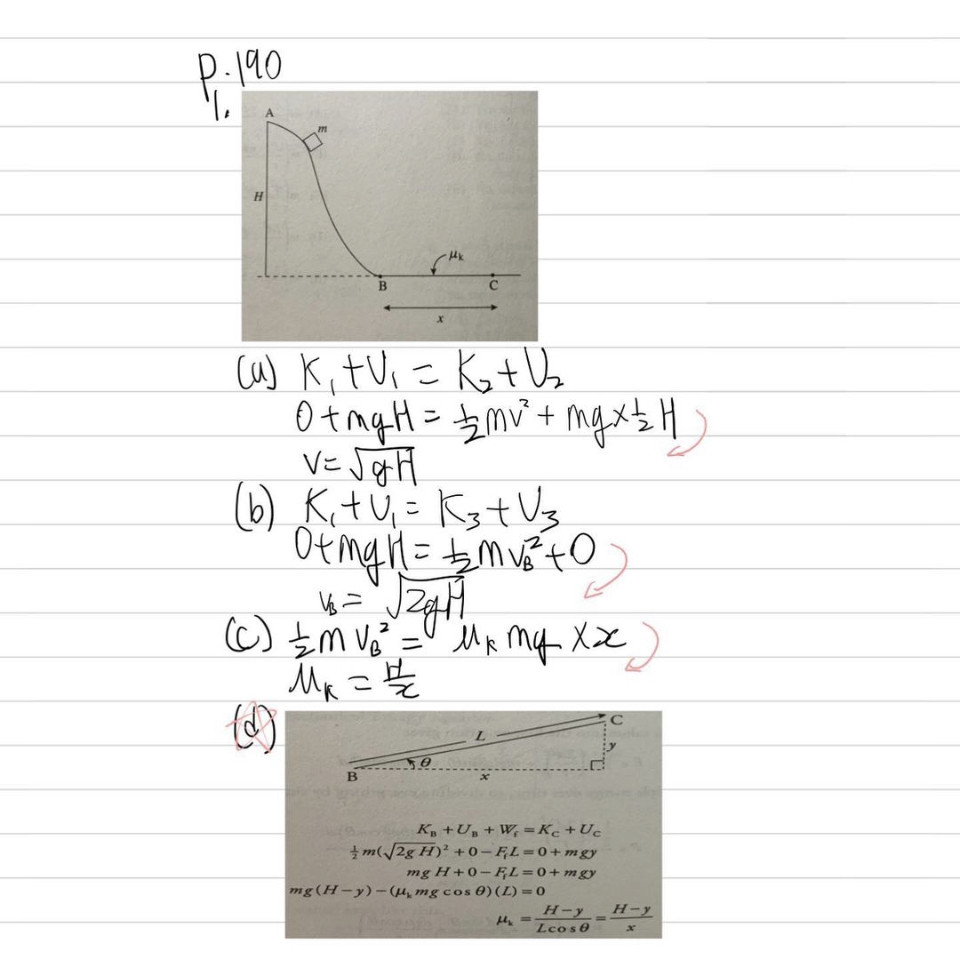 p.190
1.
A
m
H
μk
B
C
x
(a) K₁+U₁ = K₂+U₂
0+mgH = ½mv² + mg×½H
v=√gH
(b) K₁+U₁ = K₃+U₃
0+mgH = ½mv_B²+0
v_B = √2gH
(c) ½mv_B² = μ_k mg × x
μ_k = H/x
(d)
C
L
y
θ
B
x
K_B + U_B + W_f = K_C + U_C
½m(√2gH)² + 0 − F_f L = 0 + mgy
mgH + 0 − F_f L = 0 + mgy
mg(H−y) − (μ_k mg cosθ)(L) = 0
μ_k = (H−y)/(L cosθ) = (H−y)/x